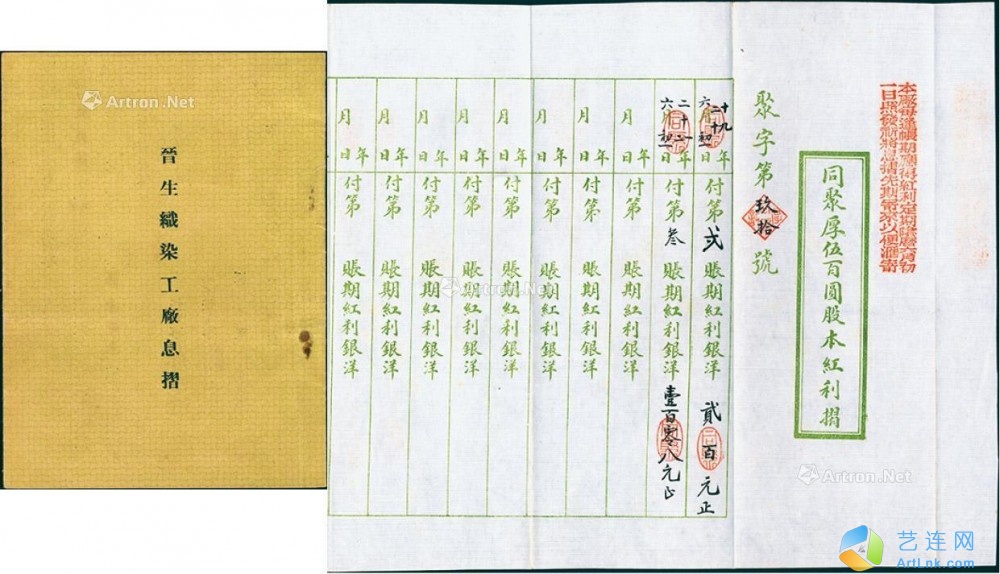 晉生織染工廠息摺
Artron.Net
本廠每逢帳期應得紅利定期議曆六月初
一日照發請將息摺先期寄來以便滙寄
同聚厚伍百圓股本紅利摺
聚字第玖拾號
十九年六月初一日付第弍賬期紅利銀洋貳百元正
二十二年六月初一日付第叁賬期紅利銀洋壹百零八元正
年月日付第賬期紅利銀洋
年月日付第賬期紅利銀洋
年月日付第賬期紅利銀洋
年月日付第賬期紅利銀洋
年月日付第賬期紅利銀洋
年月日付第賬期紅利銀洋
年月日付第賬期紅利銀洋
Artron.Net
Artron.Net
Artron.Net
艺连网
ArtLnk.com